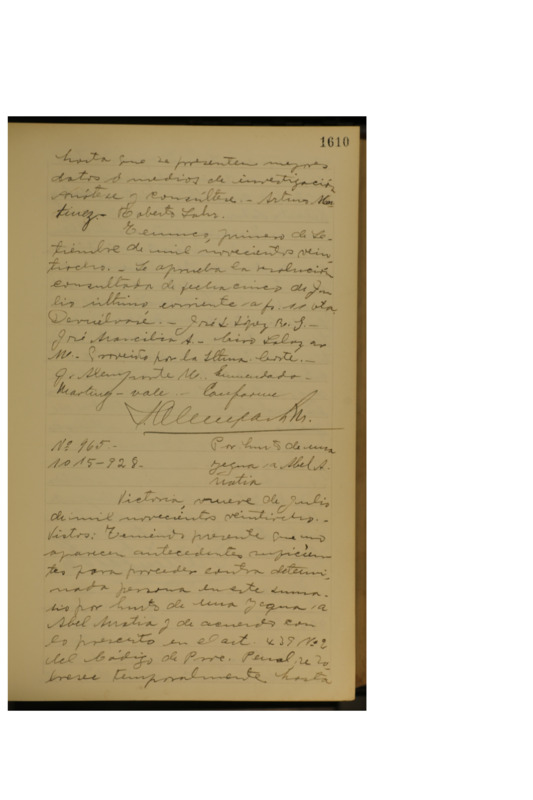 1610
hasta que se presenten mejores
datos o medios de investigación
Anótese y consúltese. - Arturo Mar
tinez - Roberto
Temuco, primero de Se-
tiembre de mil novecientos vein
tiocho. - Se aprueba la resolución
consultada de fecha cinco de Ju
lio último, corriente a fs.
Devuélvase. - José L. López
José A. -
M. Proveido por la Iltma. Corte. -
M. Enmendado -
Martinez - vale - Conforme
No 965 -
1015-928.
Por hurto de una
yegua a Abel A.
Victoria, nueve de Julio
de mil novecientos veintiocho. -
Vistos: Teniendo presente que no
aparecen antecedentes suficien
tes para proceder contra determi
nada persona en este suma-
rio por hurto de una yegua a
Abel y de acuerdo con
lo prescrito en el art. 439 No 2
del Código de Proc. Penal, se so
bresee temporalmente hasta